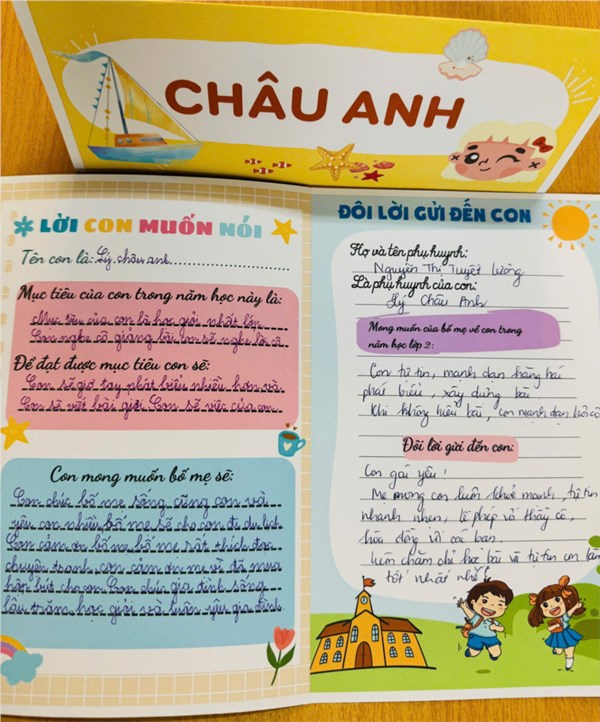 CHÂU ANH
LỜI CON MUỐN NÓI
Tên con là: Lý châu anh
Mục tiêu của con trong năm học này là:
Mục tiêu của con là học giỏi nhất lớp
Con nghe cô giảng bài con sẽ nghe lời cô
Để đạt được mục tiêu con sẽ:
Con sẽ giơ tay phát biểu nhiều hơn và
Con sẽ viết bài giỏi Con sẽ việc của con
Con mong muốn bố mẹ sẽ:
Con chúc bố mẹ sống cùng con và
yêu con nhiều bố mẹ sẽ cho con đi du lịch
Con cảm ơn bố mẹ bố mẹ rất thích đọc
chuyện tranh con cảm ơn mẹ vì đã mua
hộp bút cho con Con chúc gia đình sống
lâu trăm học giỏi và luôn yêu gia đình
ĐÔI LỜI GỬI ĐẾN CON
Họ và tên phụ huynh:
Nguyễn Thị Tuyết Lương
Là phụ huynh của con:
Lý Châu Anh
Mong muốn của bố mẹ về con trong
năm học lớp 2:
Con tự tin, mạnh dạn hăng hái
phát biểu, xây dựng bài
Khi không hiểu bài, con mạnh dạn hỏi cô
Đôi lời gửi đến con:
Con gái yêu!
Mẹ mong con luôn khoẻ mạnh, tự tin
nhanh nhẹn, lễ phép với thầy cô,
hòa đồng với các bạn.
chăm chỉ học bài và tự tin con làm
tốt nhất nhé!